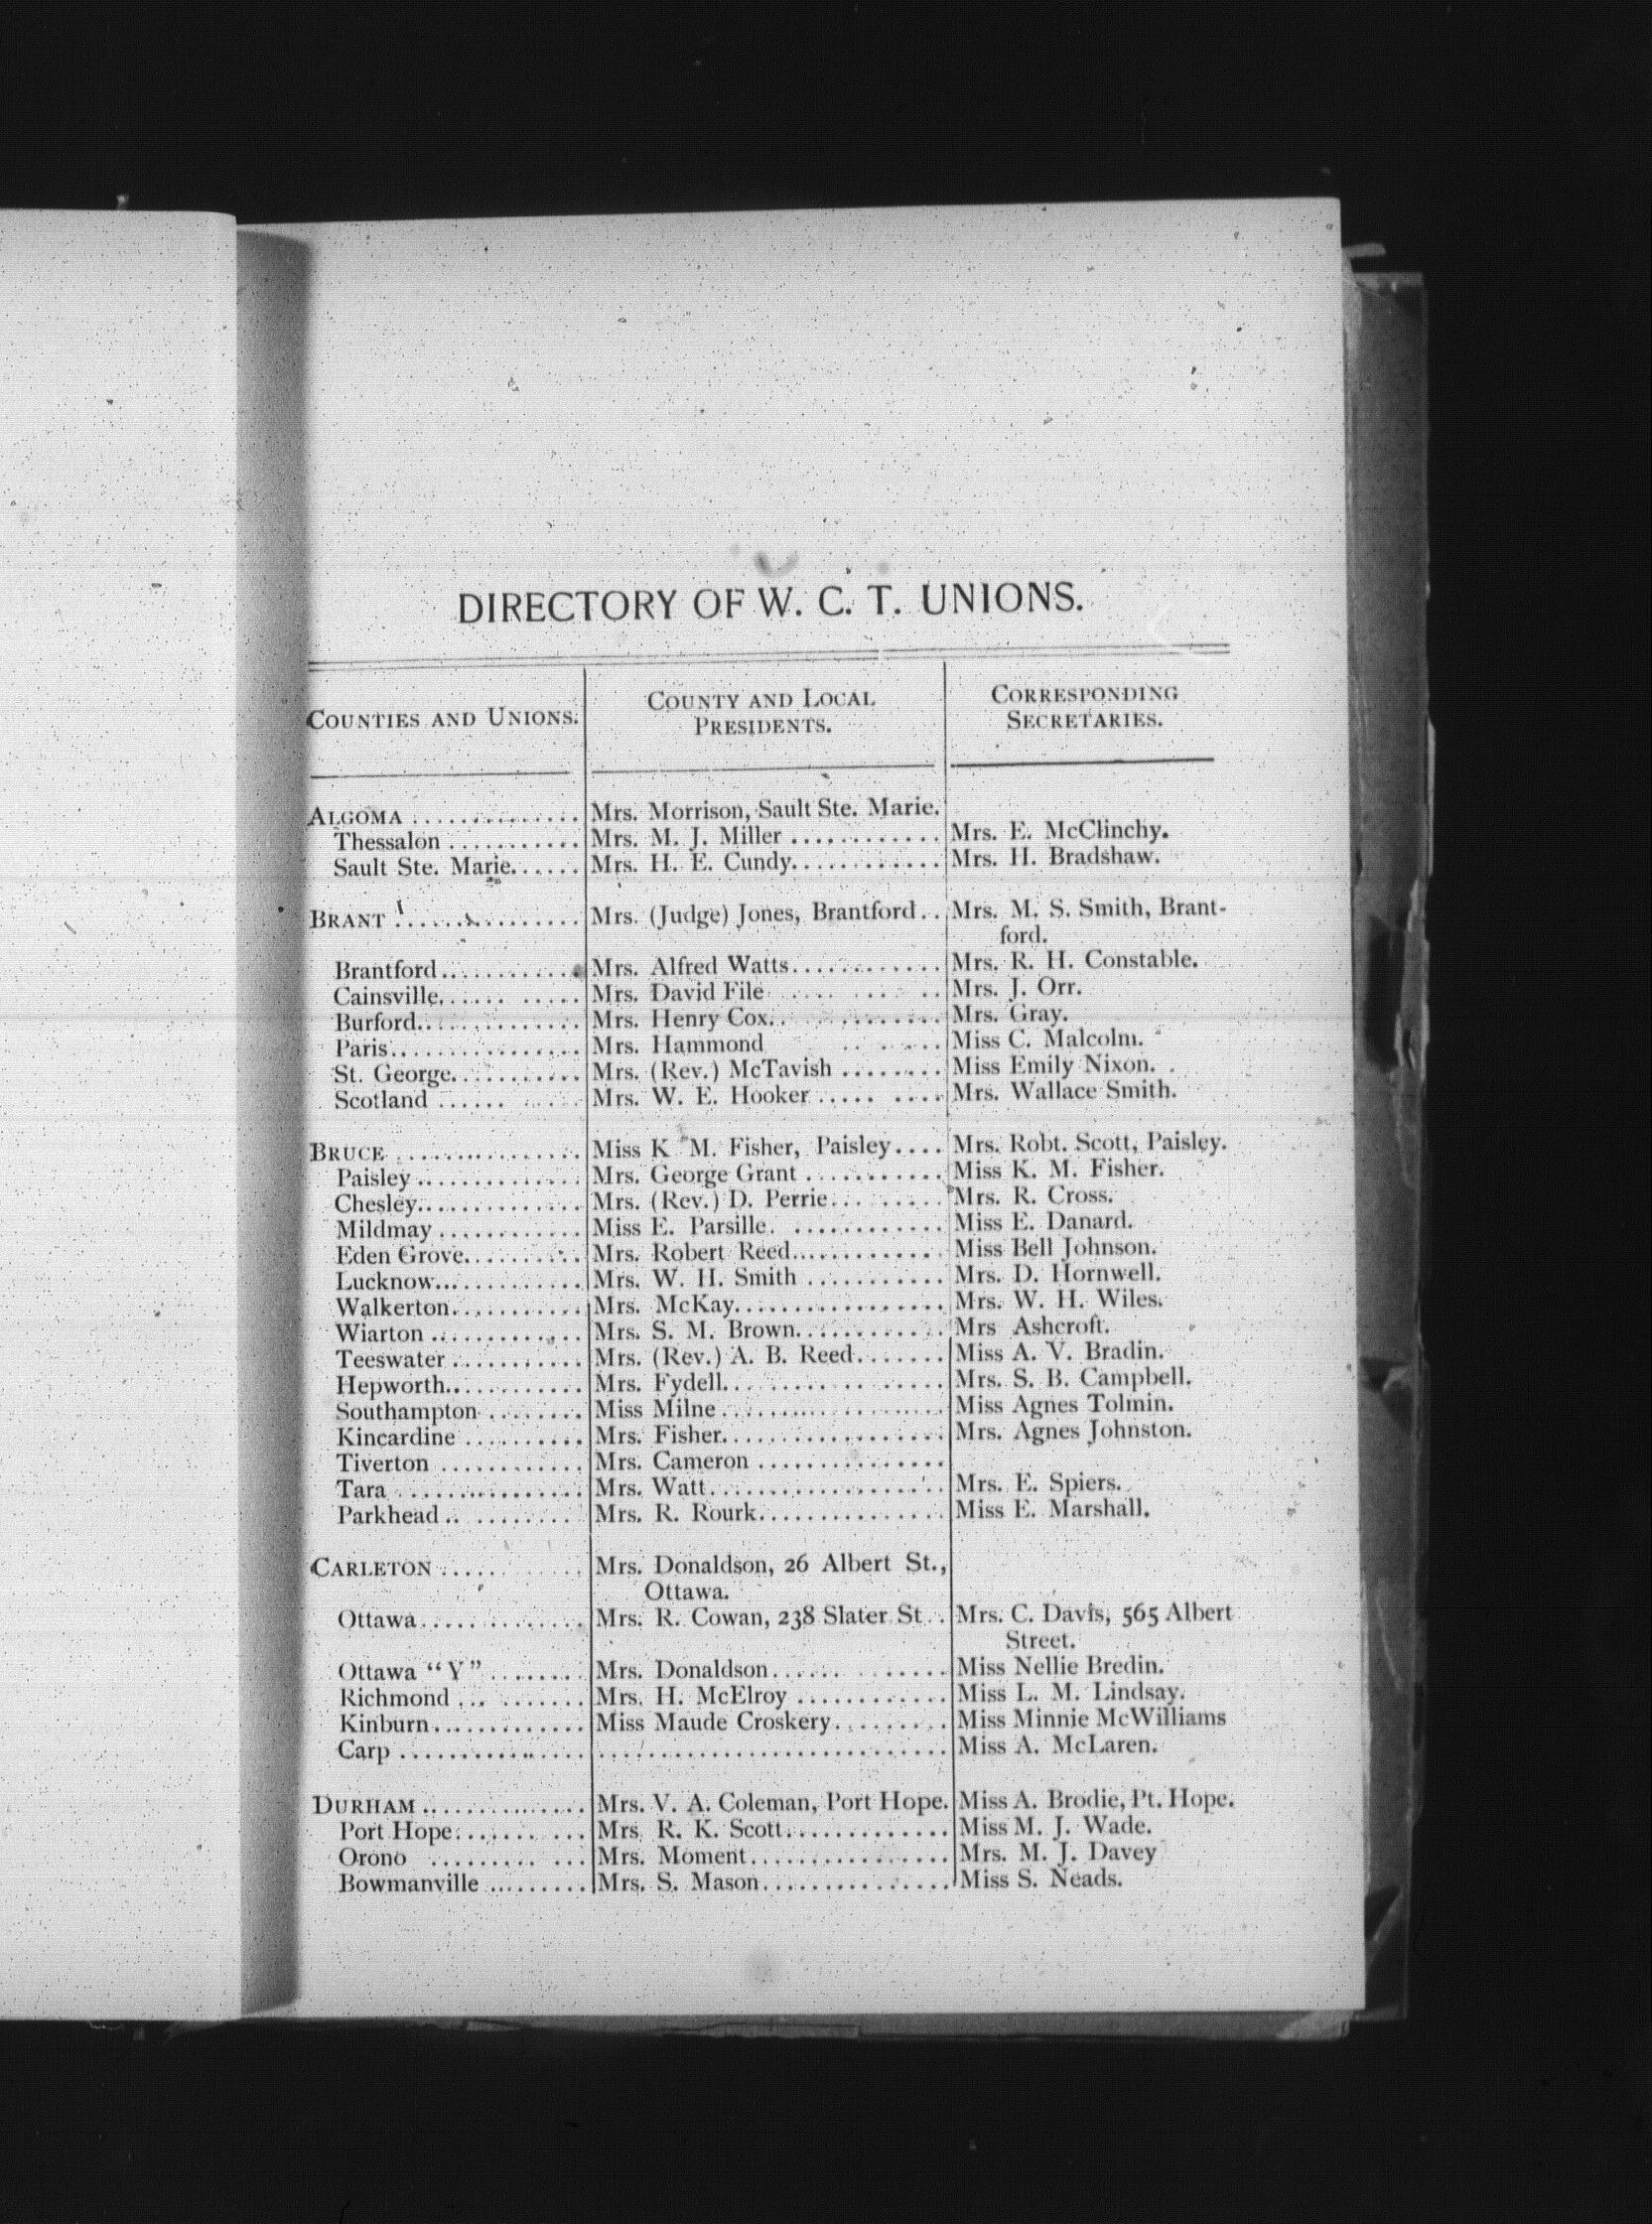 DIRECTORY OF W. C. T. UNIONS.
COUNTIES AND UNIONS. COUNTY AND LOCAL PRESIDENTS. CORRESPONDING SECRETARIES.
ALGOMA .............. Mrs. Morrison, Sault Ste. Marie.
Thessalon ........... Mrs. M. J. Miller ............ Mrs. E. McClinchy.
Sault Ste. Marie...... Mrs. H. E. Cundy............ Mrs. H. Bradshaw.
BRANT ............... Mrs. (Judge) Jones, Brantford.. Mrs. M. S. Smith, Brant-
ford.
Brantford........... Mrs. Alfred Watts............ Mrs. R. H. Constable.
Cainsville...... ..... Mrs. David File ........... .. Mrs. J. Orr.
Burford.............. Mrs. Henry Cox.............. Mrs. Gray.
Paris................ Mrs. Hammond .. ..... Miss C. Malcolm.
St. George........... Mrs. (Rev.) McTavish ........ Miss Emily Nixon.
Scotland ...... ..... Mrs. W. E. Hooker ..... .... Mrs. Wallace Smith.
BRUCE ............... Miss K M. Fisher, Paisley.... Mrs. Robt. Scott, Paisley.
Paisley.............. Mrs. George Grant ........... Miss K. M. Fisher.
Chesley.............. Mrs. (Rev.) D. Perrie......... Mrs. R. Cross.
Mildmay ............ Miss E. Parsille. ............ Miss E. Danard.
Eden Grove.......... Mrs. Robert Reed............ Miss Bell Johnson.
Lucknow............. Mrs. W. H. Smith ........... Mrs. D. Hornwell.
Walkerton........... Mrs. McKay................. Mrs. W. H. Wiles.
Wiarton ............ Mrs. S. M. Brown............ Mrs Ashcroft.
Teeswater ........... Mrs. (Rev.) A. B. Reed....... Miss A. V. Bradin.
Hepworth............ Mrs. Fydell.................. Mrs. S. B. Campbell.
Southampton ........ Miss Milne.................. Miss Agnes Tolmin.
Kincardine .......... Mrs. Fisher.................. Mrs. Agnes Johnston.
Tiverton ............ Mrs. Cameron ...............
Tara ................ Mrs. Watt................... Mrs. E. Spiers.
Parkhead.. ........ Mrs. R. Rourk............... Miss E. Marshall.
CARLETON ............ Mrs. Donaldson, 26 Albert St.,
Ottawa.
Ottawa.............. Mrs. R. Cowan, 238 Slater St. . Mrs. C. Davis, 565 Albert
Street.
Ottawa "Y"........ Mrs. Donaldson.............. Miss Nellie Bredin.
Richmond ... ....... Mrs. H. McElroy ............ Miss L. M. Lindsay.
Kinburn............. Miss Maude Croskery......... Miss Minnie McWilliams
Carp ............... ............................ Miss A. McLaren.
DURHAM ............. Mrs. V. A. Coleman, Port Hope. Miss A. Brodie, Pt. Hope.
Port Hope....... ... Mrs. R. K. Scott............. Miss M. J. Wade.
Orono ......... ... Mrs. Moment................ Mrs. M. J. Davey
Bowmanville ......... Mrs. S. Mason............... Miss S. Neads.